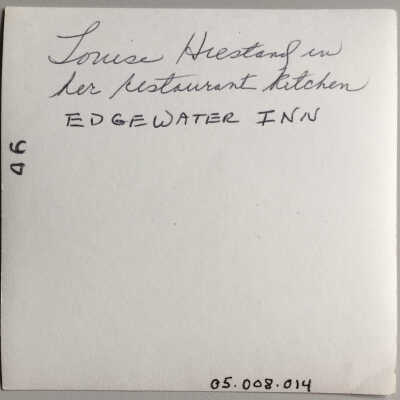 Louise Hiestand in
her restaurant kitchen
EDGEWATER INN
46
05.008.014